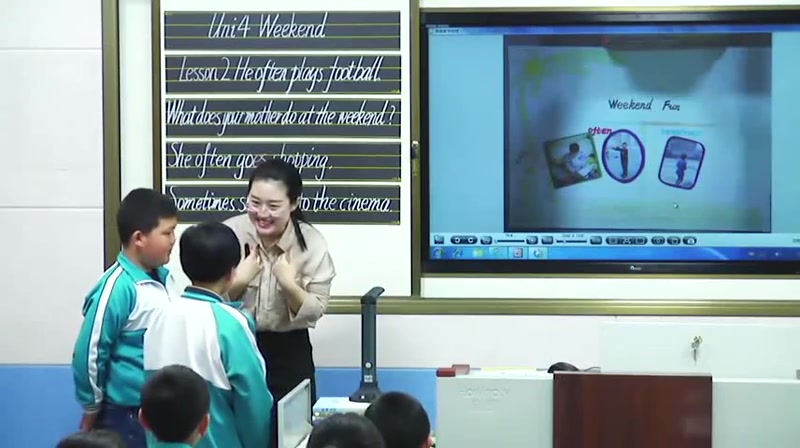 Uni4 Weekend
Lesson 2 He often plays football.
What does you mother do at the weekend?
She often goes shopping.
Sometimes s to the cinema.
Weekend Fun
often